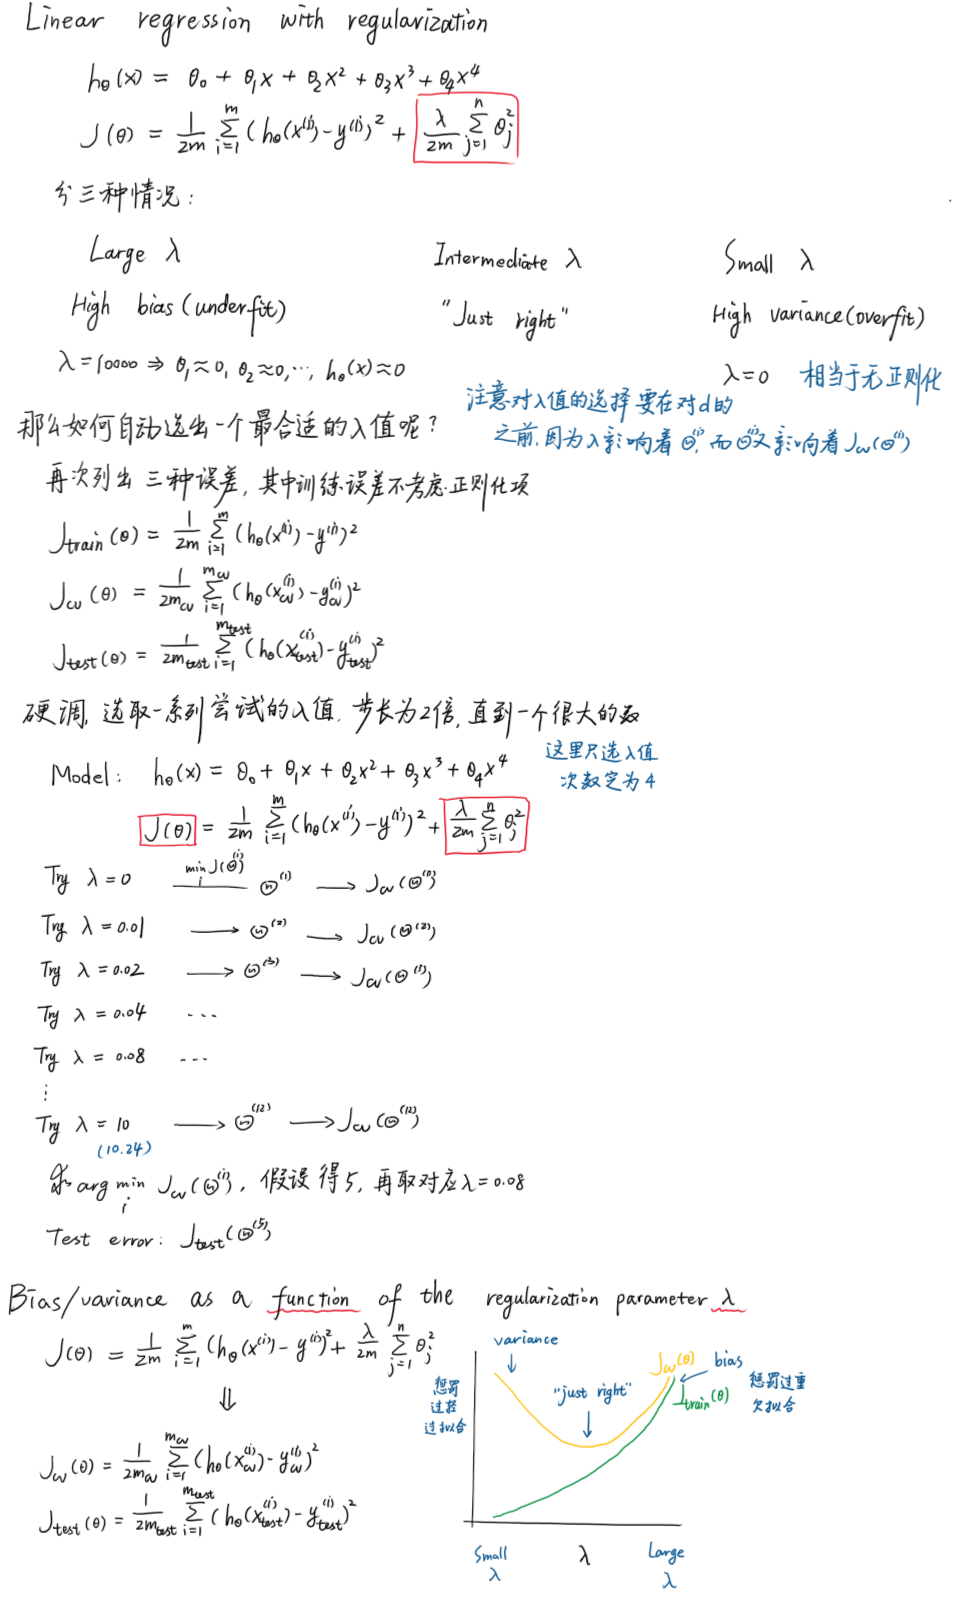 Linear regression with regularization
hθ(x) = θ₀ + θ₁x + θ₂x² + θ₃x³ + θ₄x⁴
J(θ) = 1/2m Σ_{i=1}^{m} (hθ(x⁽ⁱ⁾) - y⁽ⁱ⁾)² + λ/2m Σ_{j=1}^{n} θⱼ²
分三种情况:
Large λ Intermediate λ Small λ
High bias (underfit) "Just right" High variance (overfit)
λ = 10000 ⇒ θ₁≈0, θ₂≈0, ⋯, hθ(x)≈0
λ=0 相当于无正则化
注意对λ值的选择要在对d的
之前,因为λ影响着Θ⁽ⁱ⁾,而Θ⁽ⁱ⁾又影响着Jcv(Θ⁽ⁱ⁾)
那么如何自动选出一个最合适的λ值呢?
再次列出三种误差,其中训练误差不考虑正则化项
Jtrain(θ) = 1/2m Σ_{i=1}^{m} (hθ(x⁽ⁱ⁾) - y⁽ⁱ⁾)²
Jcv(θ) = 1/2mcv Σ_{i=1}^{mcv} (hθ(xcv⁽ⁱ⁾) - ycv⁽ⁱ⁾)²
Jtest(θ) = 1/2mtest Σ_{i=1}^{mtest} (hθ(xtest⁽ⁱ⁾) - ytest⁽ⁱ⁾)²
硬调,选取一系列尝试的λ值,步长为2倍,直到一个很大的数
这里只选λ值
次数定为4
Model: hθ(x) = θ₀ + θ₁x + θ₂x² + θ₃x³ + θ₄x⁴
J(θ) = 1/2m Σ_{i=1}^{m} (hθ(x⁽ⁱ⁾) - y⁽ⁱ⁾)² + λ/2m Σ_{j=1}^{n} θⱼ²
Try λ = 0 min_i J(Θ⁽ⁱ⁾) Θ⁽¹⁾ → Jcv(Θ⁽¹⁾)
Try λ = 0.01 → Θ⁽²⁾ → Jcv(Θ⁽²⁾)
Try λ = 0.02 → Θ⁽³⁾ → Jcv(Θ⁽³⁾)
Try λ = 0.04 ...
Try λ = 0.08 ...
⋮
Try λ = 10 → Θ⁽¹²⁾ → Jcv(Θ⁽¹²⁾)
(10.24)
求 arg min_i Jcv(Θ⁽ⁱ⁾), 假设得5, 再取对应λ=0.08
Test error: Jtest(Θ⁽⁵⁾)
Bias/variance as a function of the regularization parameter λ
J(θ) = 1/2m Σ_{i=1}^{m} (hθ(x⁽ⁱ⁾) - y⁽ⁱ⁾)² + λ/2m Σ_{j=1}^{n} θⱼ²
⇓
Jcv(θ) = 1/2mcv Σ_{i=1}^{mcv} (hθ(xcv⁽ⁱ⁾) - ycv⁽ⁱ⁾)²
Jtest(θ) = 1/2mtest Σ_{i=1}^{mtest} (hθ(xtest⁽ⁱ⁾) - ytest⁽ⁱ⁾)²
variance
惩罚
过轻
过拟合
"just right"
Jcv(θ)
bias
Jtrain(θ)
惩罚过重
欠拟合
Small
λ
λ
Large
λ